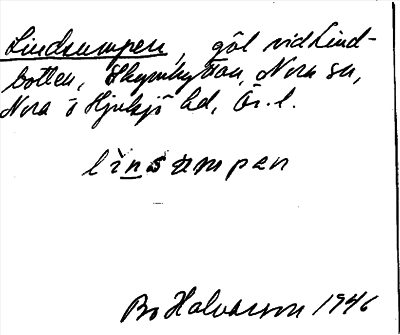 Lindsumpen, göl vid Lind-
botten, Skrumhyttan, Nora sn,
Nora o Hjulsjö bd, Ör. l.
linsumpen
Bo Halvarson 1946